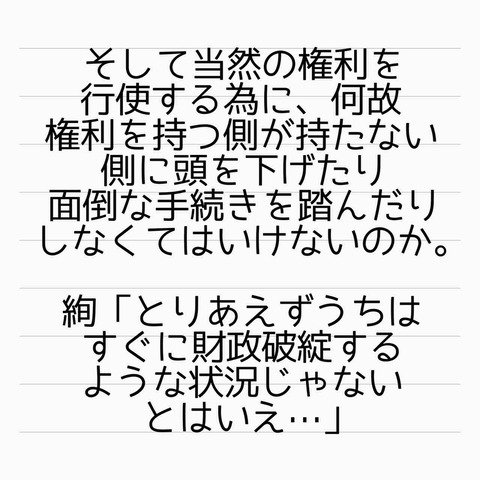 そして当然の権利を
行使する為に、何故
権利を持つ側が持たない
側に頭を下げたり
面倒な手続きを踏んだり
しなくてはいけないのか。
絢「とりあえずうちは
すぐに財政破綻する
ような状況じゃない
とはいえ…」